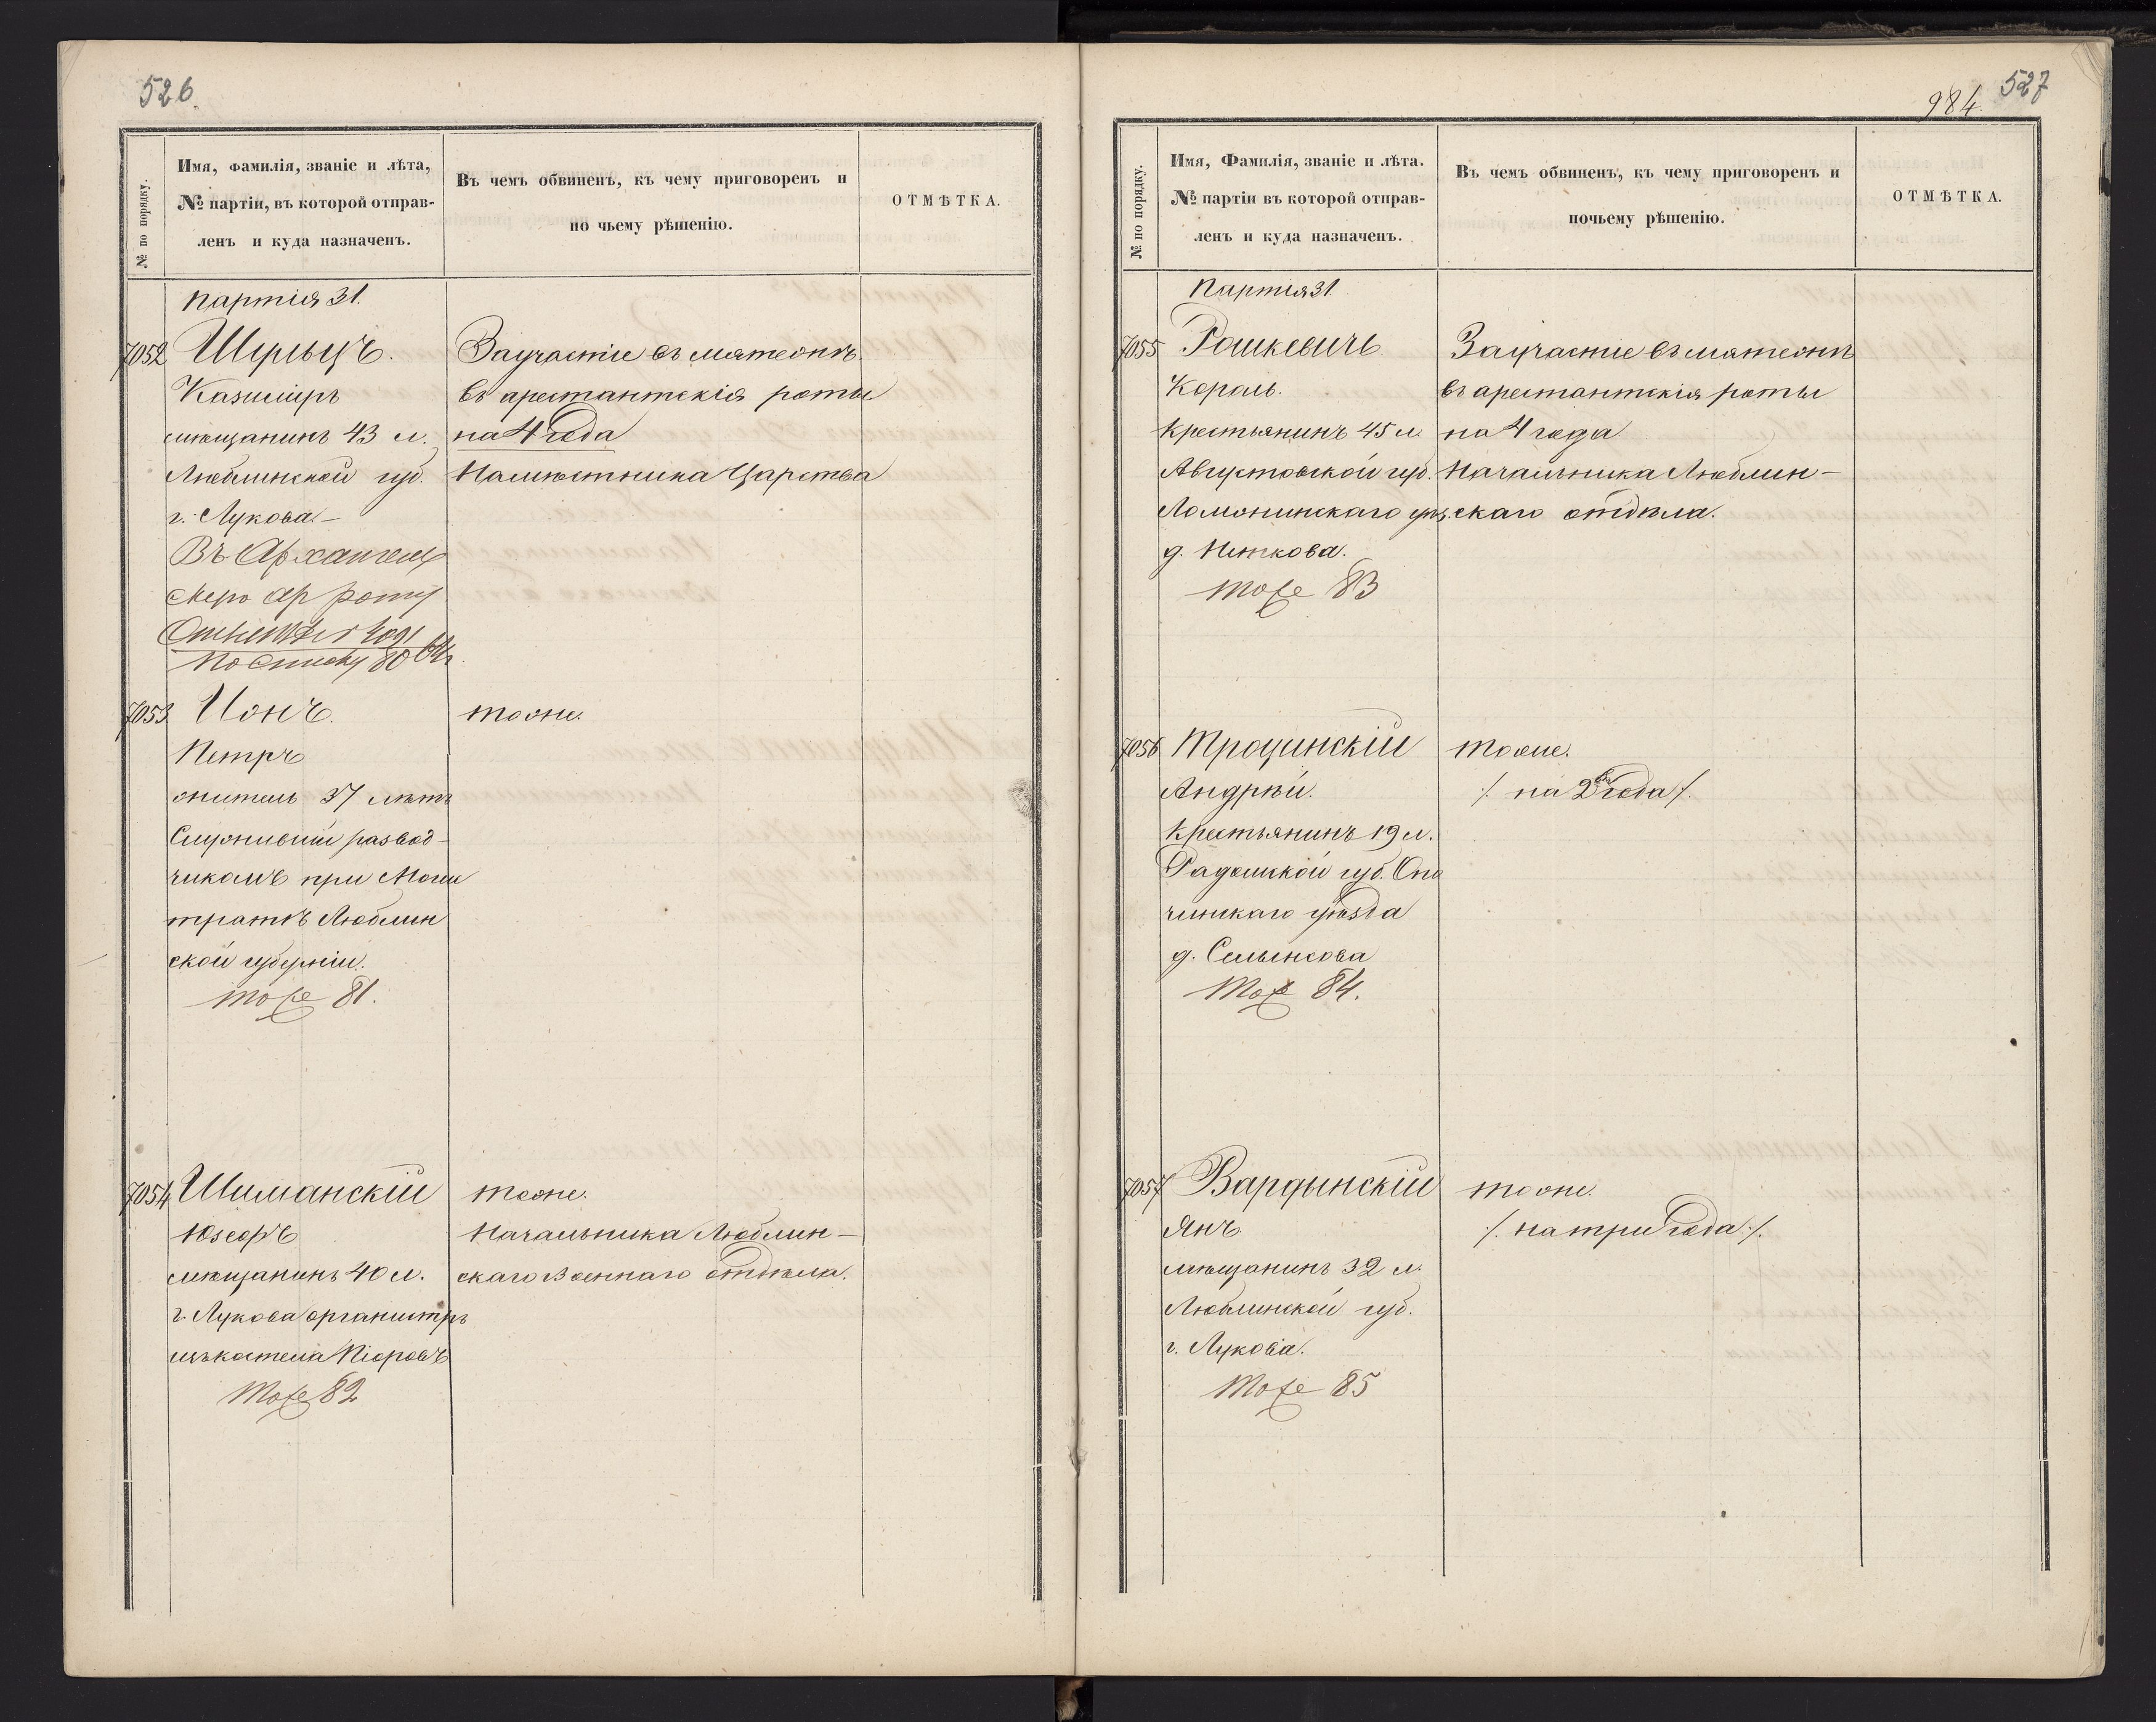 526.
№ по порядку.
Имя, фамилія, званіе и лѣта,
№ партіи, въ которой отправ-
ленъ и куда назначенъ.
Въ чемъ обвиненъ, къ чему приговоренъ и
по чьему рѣшенію.
ОТМѢТКА.
Партія 31.
7052
Шульцъ.
Казиміръ
мѣщанинъ 43 л.
Люблинской губ.
г. Лукова.
Въ Архангель
скую ар роту
По списку 80
За участіе въ мятежѣ
въ арестантскія роты
на 4 года
Намѣстника Царства
7053
Іонъ.
Петръ
житель 37 лѣтъ
Служившій развод-
чикомъ при Маги
тратѣ Люблин
ской губерніи.
Тоже 81.
тоже.
7054
Шиманскій
Юзефъ
мѣщанинъ 40 л.
г. Лукова органистръ
Тоже 82
тоже.
Начальника Люблин-
скаго Военнаго отдѣла.
527
984.
№ по порядку.
Имя, Фамилія, званіе и лѣта.
№ партіи въ которой отправ-
ленъ и куда назначенъ.
Въ чемъ обвиненъ, къ чему приговоренъ и
почьему рѣшенію.
ОТМѢТКА.
Партія 31.
7055
Рашкевичъ
Кароль.
Крестьянинъ 45 л.
Августовской губ.
Ломжинскаго уѣз.
д. Неткова.
Тоже 83
За участіе въ мятежѣ
въ арестантскія роты
на 4 года
Начальника Люблин-
скаго отдѣла.
7056
Троцинскій
Андрѣй.
Крестьянинъ 19 л.
Радомской губ. Опо
чинскаго уѣзда
д. Сельнсова
Тоже 84.
тоже.
/. на 2 года /.
7057
Вардынскій
Янъ.
мѣщанинъ 32 л.
Люблинской губ.
г. Лукова.
Тоже 85
тоже.
/. на три года /.